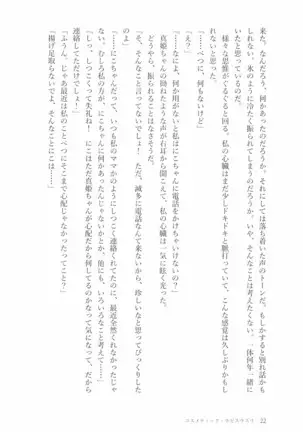 来た。なんだろう、何かあったのだろうか。それにしては落ち着いた声のトーンだ。もしかすると別れ話かも
しれない。氷のように冷たく振られてしまうのだろうか。いや、そんなことは考えたくない。一体何年一緒に
いたと思っているのだ。
様々な思惟がぐるぐると回る。私の心臓はまだ少しドキドキと脈打っていて、こんな感覚は久しぶりかもし
れないと思った。
「……べつに、何もないけど」
「え?」
「……なによ、何か用がないと私はにこちゃんに電話をかけちゃいけないの?」
真姫ちゃんの拗ねたような声が右耳から聞こえてきて、私の心臓は一気に眩く光った。
どうやら、振られることはなさそうだ。
「そ、そんなこと言ってないでしょ! ただ、滅多に電話なんて来ないから、珍しいなと思ってびっくりした
だけなの」
「……にこちゃんだって、いつも私のママかのようにしつこく連絡くれてたのに、最近全然くれなかったじゃ
ない。むしろ私の方が、にこちゃんに何かあったんじゃないかとか、他にも、いろいろなこと考えて……」
「しっ、しつこくって失礼ね! にこはただ真姫ちゃんが心配だから何してるのかなって気になって、だから
連絡しただけで」
「ふうん。じゃあ最近は私のことべつにそこまで心配じゃなかったってこと?」
「揚げ足取らないでよ、そんなことにこは……」
コスメティック・ロビカサリリ 22